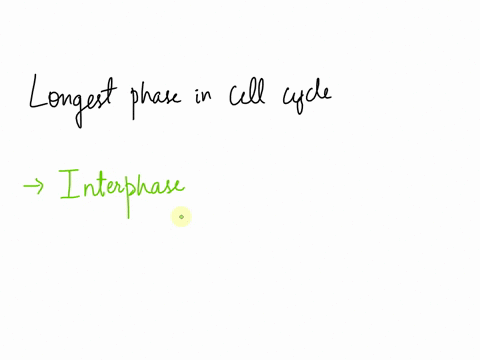 Longest phase in cell cycle
→ Interphase